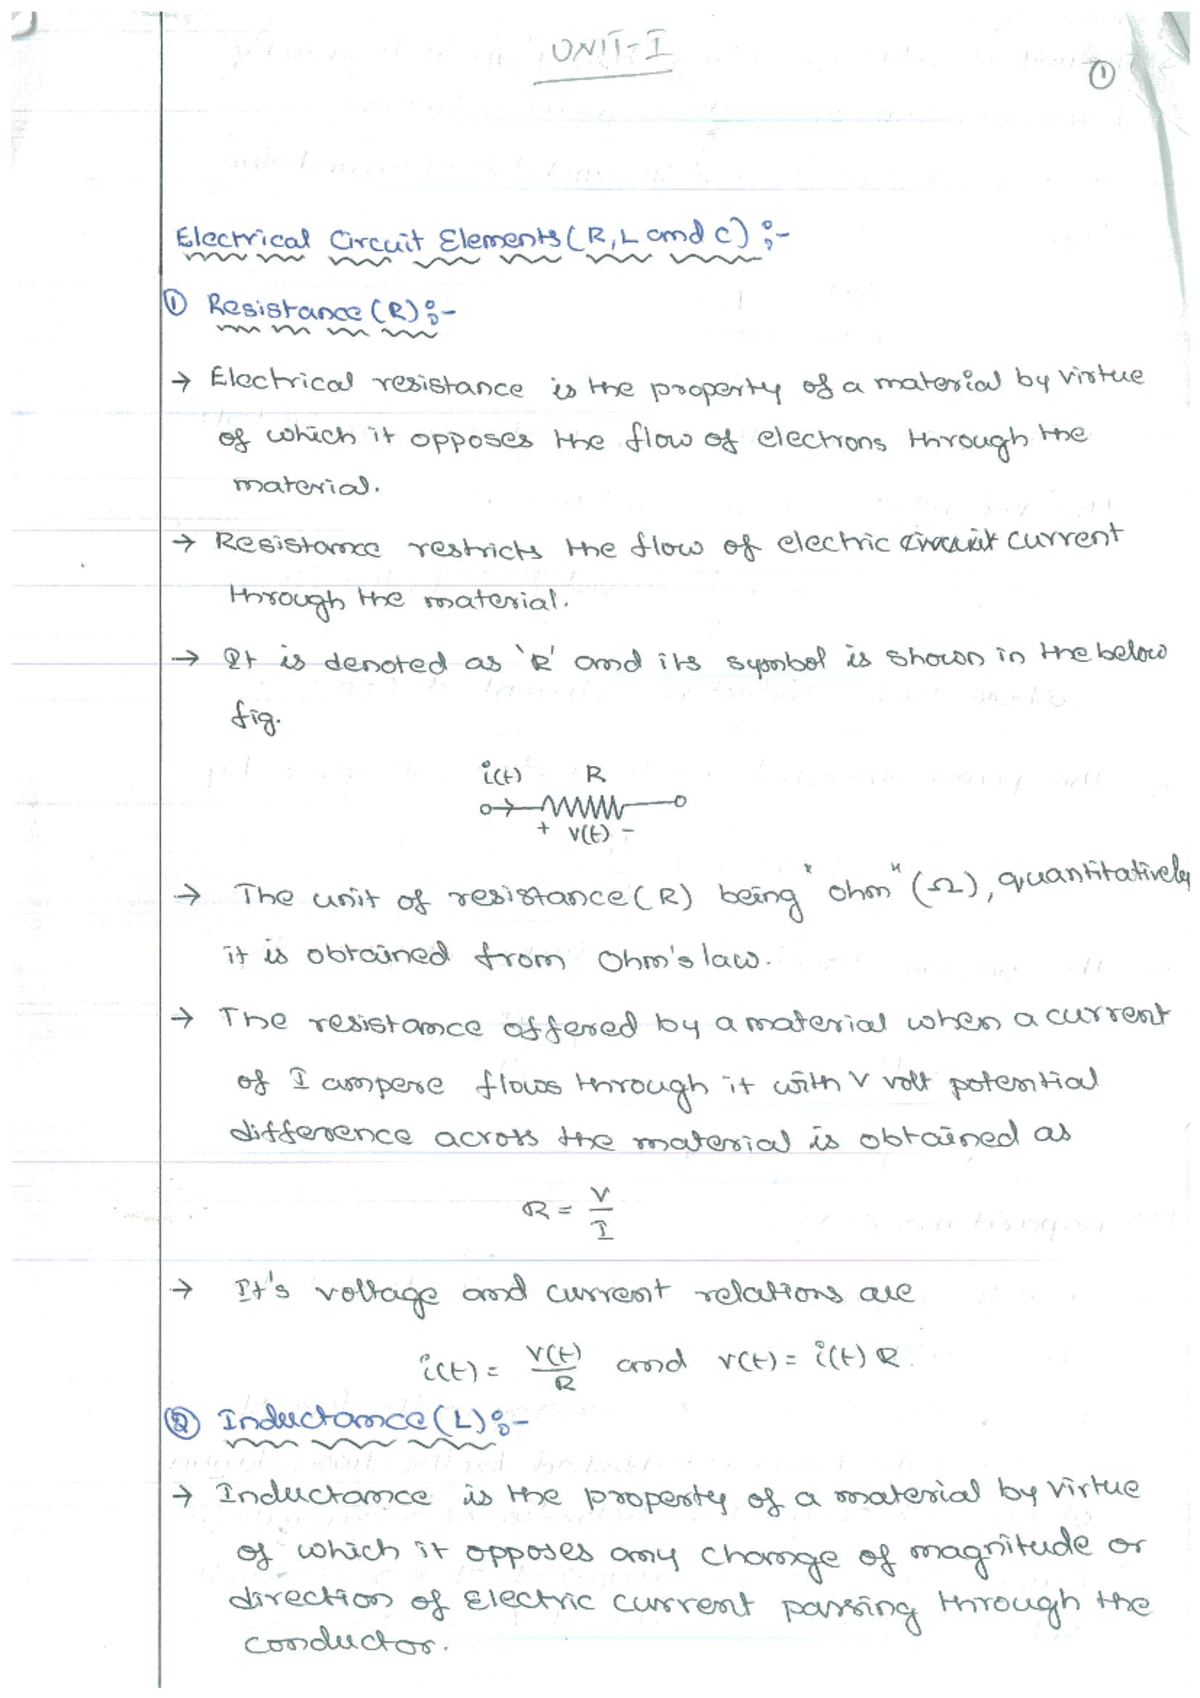 UNIT-I
1
Electrical Circuit Elements (R, L and C) :-
① Resistance (R) :-
→ Electrical resistance is the property of a material by virtue
of which it opposes the flow of electrons through the
material.
→ Resistance restricts the flow of electric circuit current
through the material.
→ It is denoted as 'R' and its symbol is shown in the below
fig.
i(t) R
+ v(t) -
→ The unit of resistance (R) being "ohm" (Ω), quantitatively
it is obtained from Ohm's law.
→ The resistance offered by a material when a current
of I ampere flows through it with V volt potential
difference across the material is obtained as
R = V/I
→ It's voltage and current relations are
i(t) = V(t)/R and v(t) = i(t) R.
② Inductance (L) :-
→ Inductance is the property of a material by virtue
of which it opposes any change of magnitude or
direction of Electric current passing through the
conductor.